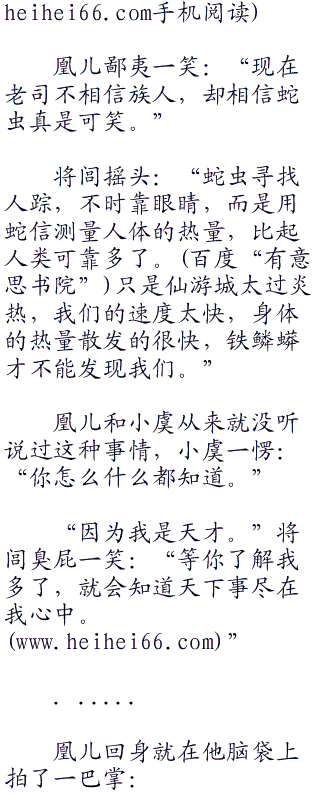 heihei66.com手机阅读)
凰儿鄙夷一笑：“现在
老司不相信族人，却相信蛇
虫真是可笑。”
将闾摇头：“蛇虫寻找
人踪，不时靠眼睛，而是用
蛇信测量人体的热量，比起
人类可靠多了。(百度“有意
思书院”)只是仙游城太过炎
热，我们的速度太快，身体
的热量散发的很快，铁鳞蟒
才不能发现我们。”
凰儿和小虞从来就没听
说过这种事情，小虞一愣：
“你怎么什么都知道。”
“因为我是天才。”将
闾臭屁一笑：“等你了解我
多了，就会知道天下事尽在
我心中。
(www.heihei66.com)”
. .....
凰儿回身就在他脑袋上
拍了一巴掌：